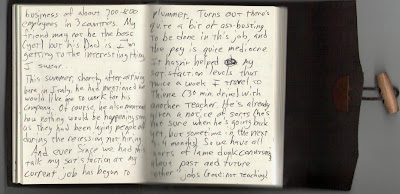 business of about 700-800
employees in 3 countries. My
friend may not be the boss
(yet) but his Dad is, I'm
getting to the interesting thing
I swear.
This summer, shortly after arriving
here in July, he had mentioned he
would like me to work for his
company. Of course, he also mentioned
how nothing would be happening soon
as they had been laying people off
during the recession, not hiring.
And ever since we had that
talk my satisfaction at my
current job has began to
plummet. Turns out there's
quite a bit of ass-busting
to be done in this job, and
the pay is quite mediocre.
It hasn't helped my
satisfaction levels that
twice a week I travel to
(30 min drive) with
another teacher. He's already
given a notice of sorts (he's
not sure when he's going back
yet, but sometime in the next
months) So we have all
sorts of lame conversations
about past and future
other jobs (one: not teaching)